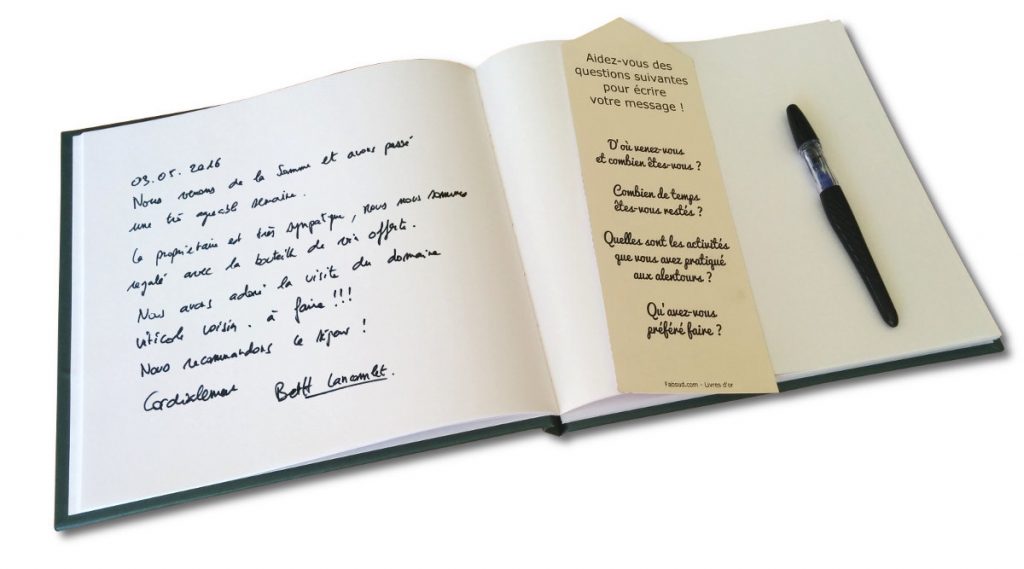 03.05.2016
Nous venons de la Somme et avons passé
une très agréable semaine.
Le propriétaire est très sympatique, nous nous sommes
régalé avec la bouteille de vin offerte.
Nous avons adoré la visite du domaine
viticole voisin. à faire !!!
Nous recommandons ce séjour !
Cordialement
Aidez-vous des
questions suivantes
pour écrire
votre message !
D'où venez-vous
et combien êtes-vous ?
Combien de temps
êtes-vous restés ?
Quelles sont les activités
que vous avez pratiqué
aux alentours ?
Qu'avez-vous
préféré faire ?
Fabsud.com - Livres d'or